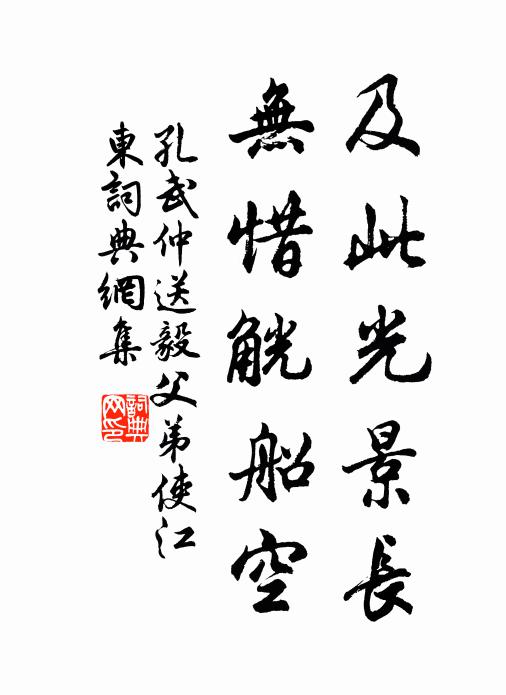 及此光景長
無惜觥船空
孔武仲送毅父弟使江
東詞典網集
詞典
网印